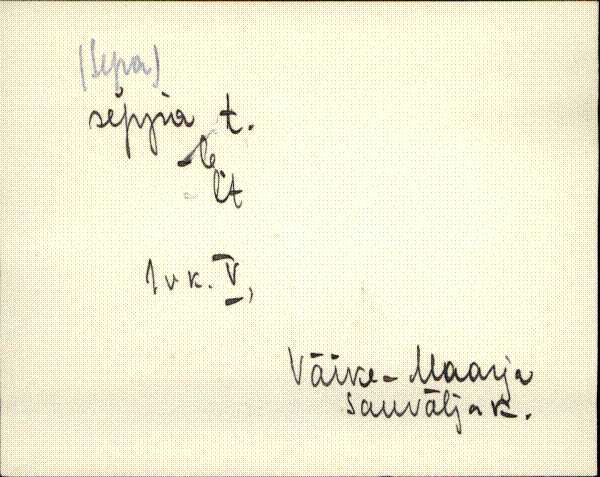 (Sepa)
sèppia t.
-le
lt
1 v k. V,
Väike-Maarja
Sauvälja k.